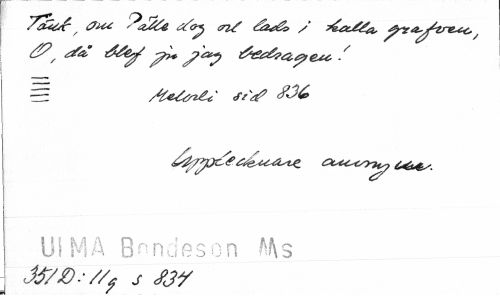 Tänk, om Pålle dog och lads i kalla grafven,
O, då blef ju jag bedragen!
Melodi sid 836
Upptecknare anonym.
ULMA Bondeson Ms
351D:11q s 834